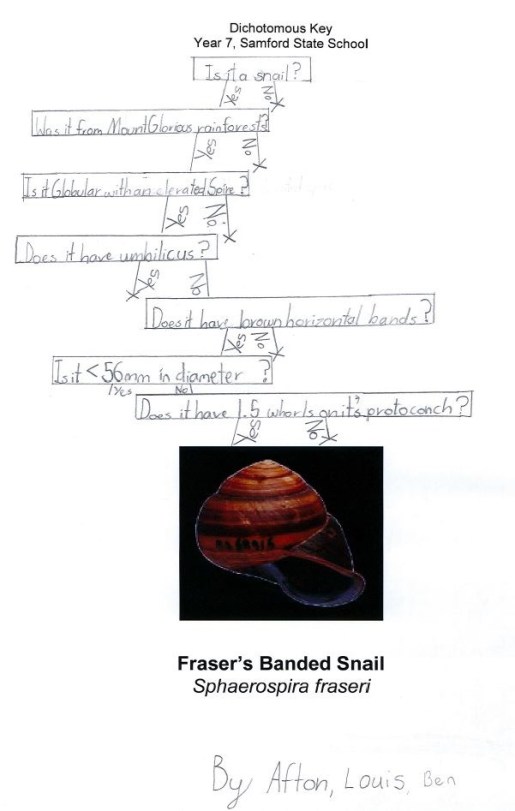 Dichotomous Key
Year 7, Samford State School
Is it a snail?
Yes No
Was it from Mount Glorious rainforest?
Yes No
Is it Globular with an elevated Spire?
Yes No.
Does it have umbilicus?
Yes No
Does it have brown horizontal bands?
Yes No
Is it <56mm in diameter ?
Yes No
Does it have 1.5 whorls on it's protoconch?
Yes No
Fraser's Banded Snail
Sphaerospira fraseri
By Afton, Louis, Ben